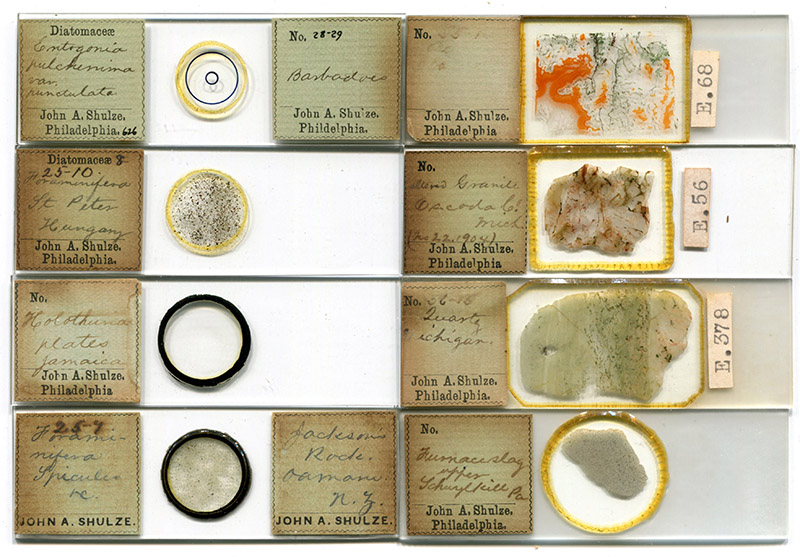 Diatomaceæ
Entogonia
pulcherrima
var
punctulata
John A. Shulze.
Philadelphia. 626
No. 28-29
Barbadoes
John A. Shulze.
Phildelphia.
No.
John A. Shulze.
Philadelphia
E.68
Diatomaceæ 8
25-10
Foraminifera
St Peter
Hungary
John A. Shulze.
Philadelphia.
No.
Granite
Oscoda Co.
Mich
22.1904)
John A. Shulze.
Philadelphia.
E.56
No.
Holothuria
plates
Jamaica
John A. Shulze.
Philadelphia
Quartz
ichigan.
John A. Shulze.
Philadelphia.
E.378
25-7
Forami-
nifera
Spicules
&c.
JOHN A. SHULZE.
Jackson's
Rock.
Oamaru
N.Z.
JOHN A. SHULZE.
No.
Furnace slag
upper
Schuylkill Pa
John A. Shulze.
Philadelphia.